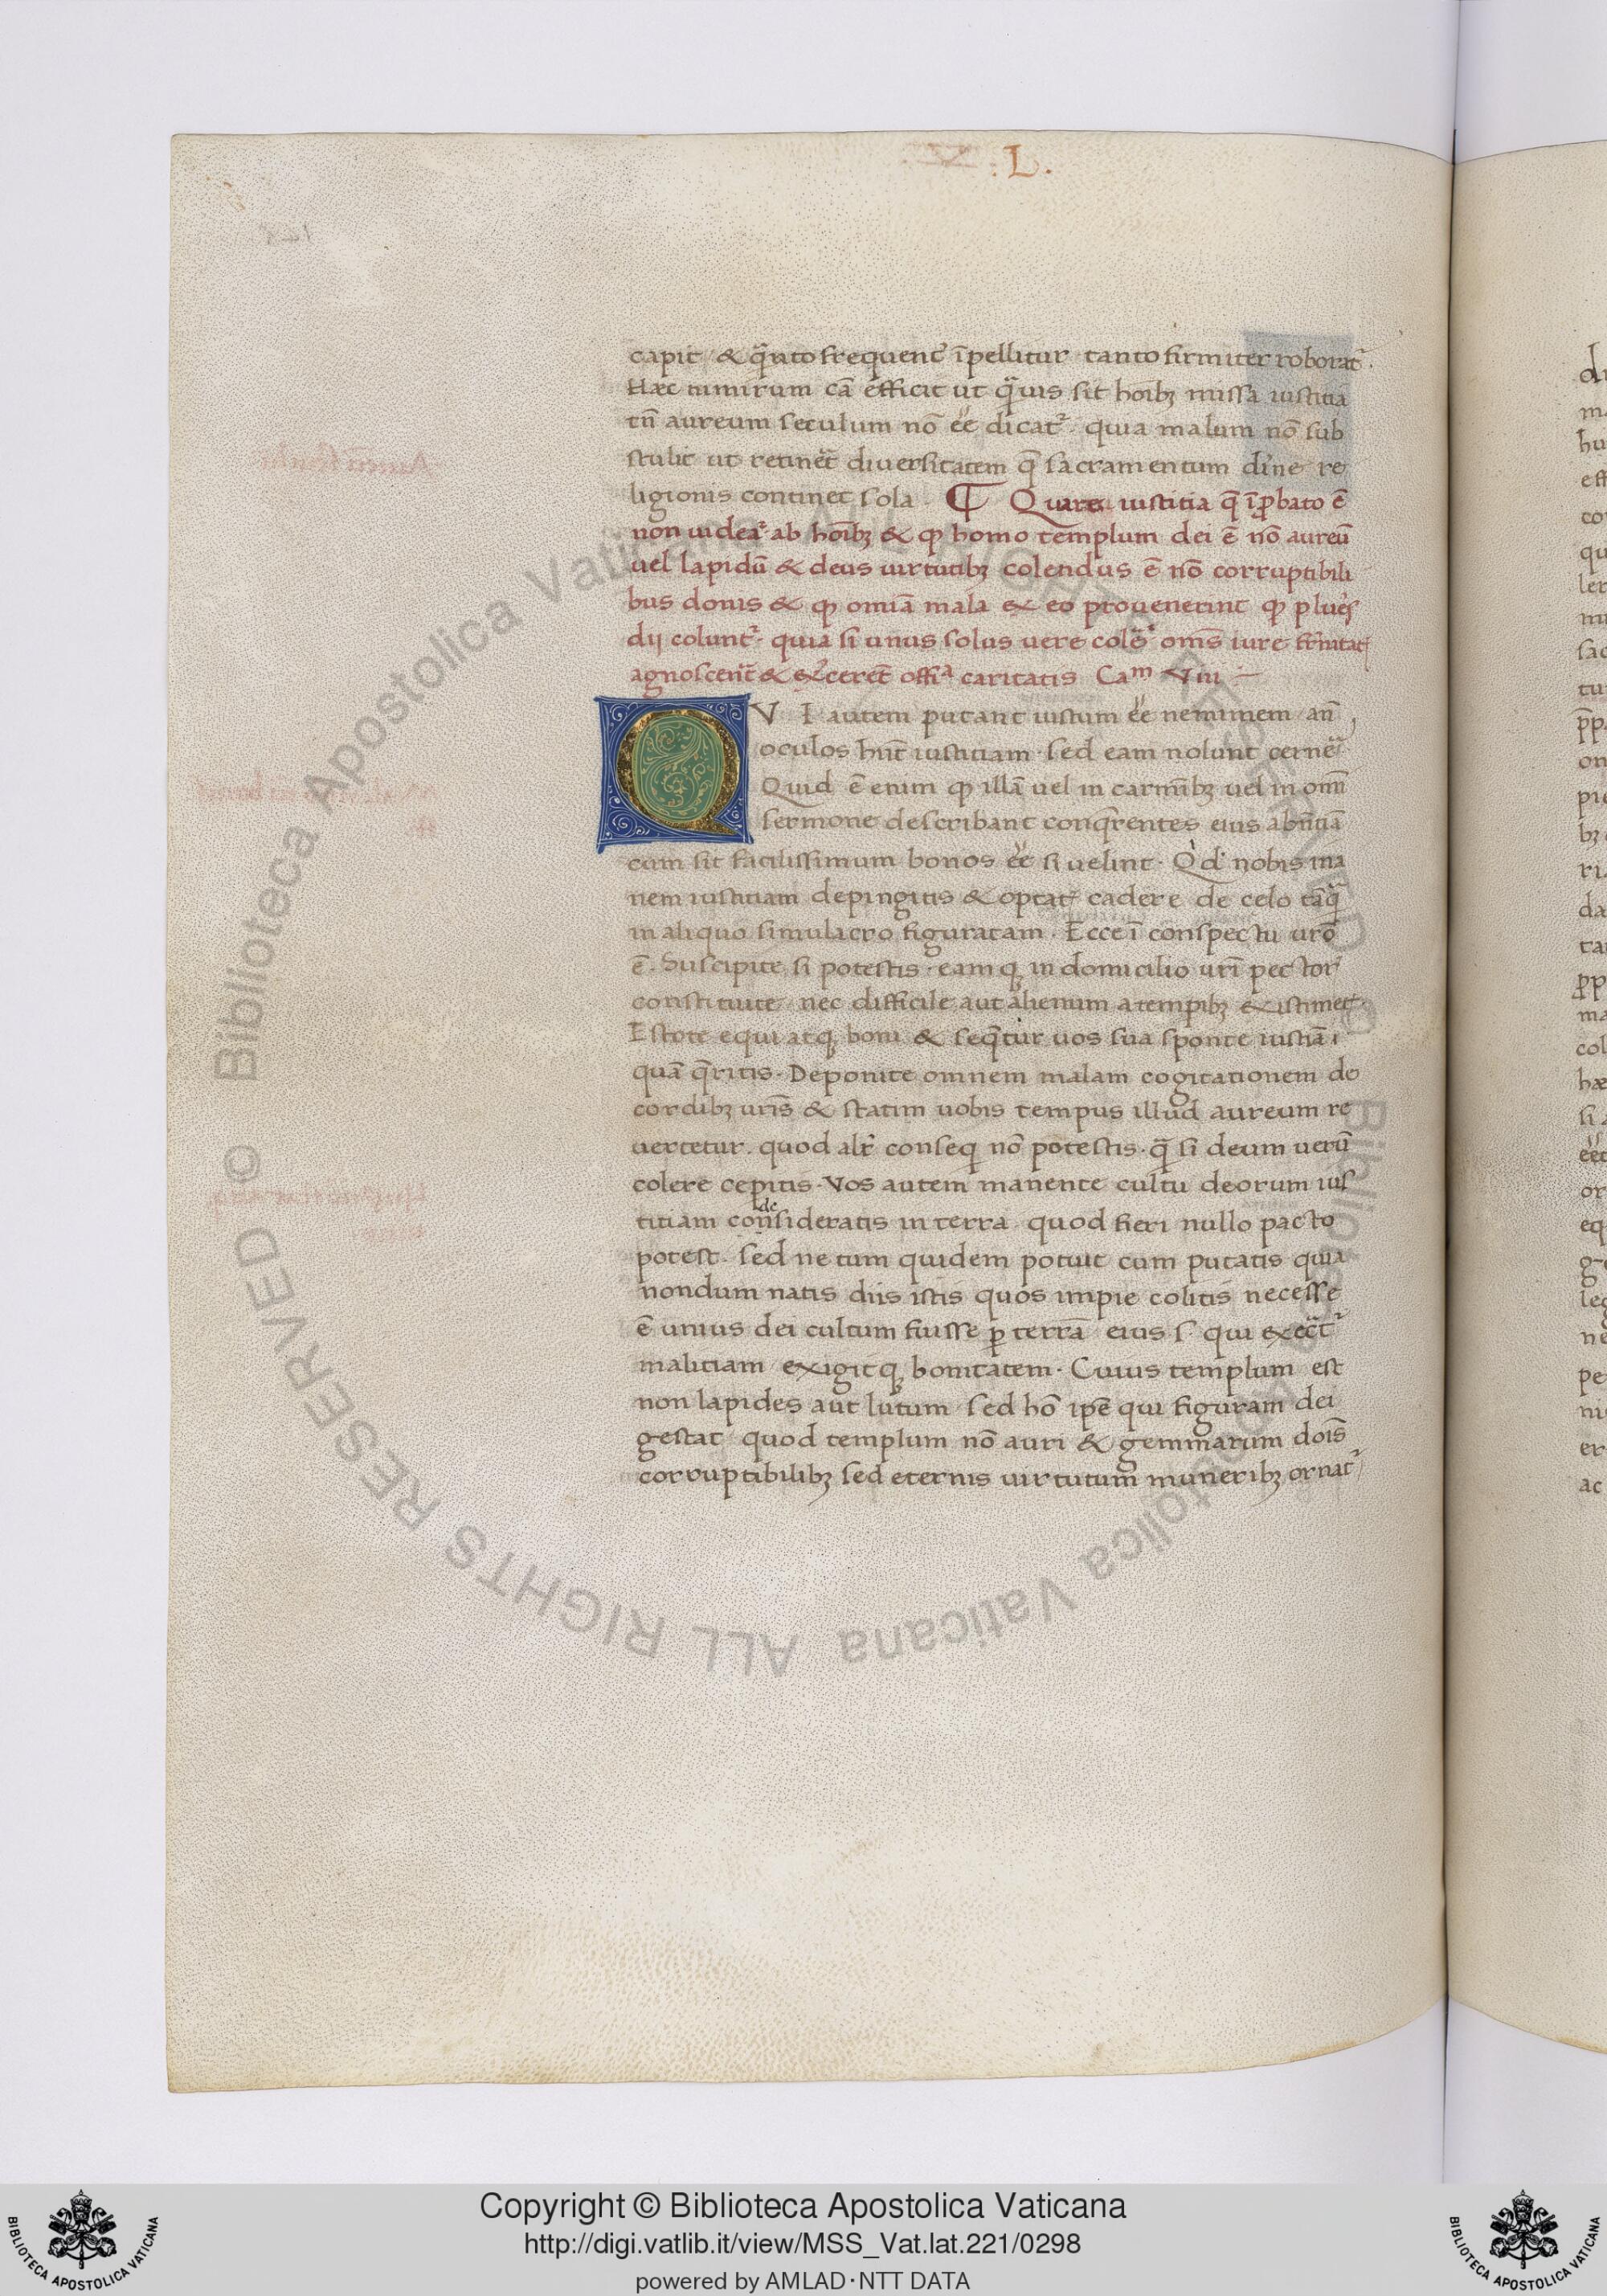 : L .
capit / & q̃nto frequenť ĩpellitur tanto firmiter roborat᷒ .
Hæc nimirum cã efficit ut q̃uis sit hoĩbꝫ missa iustitia
tñ aureum seculum nõ ẽe dicat᷒ . quia malum nõ sub
stulit ut retineẽt diversitatem q̃ sacramentum diĩne re
ligionis continet sola . ¶ Quare iustitia q̃ ĩꝓbato ẽ
non uideat᷒ ab hoĩbꝫ & ꝙ homo templum dei ẽ nõ aureũ
uel lapidũ & deus uirtutibꝫ colendus ẽ nõ corruptibili
bus donis & ꝙ omĩa mala ex eo prouenerint ꝙ plures
dij colunt᷒ . quia si unus solus uere colet᷒ oms̃ iure
agnoscerẽt & exercerẽt offiᵃ caritatis Caᵐ Viii
QV I autem putant iustum ẽe neminem / añ
oculos hñt iustitiam . sed eam nolunt cernẽ
Quid ẽ enim ꝙ illã uel in carmĩbꝫ uel in omĩ
sermone describant conq̃rentes eius abñtiã
cum sit facilissimum bonos ẽe si uelint . Qd᷒ nobis ina
nem iustitiam depingitis & optat᷒ cadere de celo tãq̃
in aliquo simulacro figuratam . Ecce ĩ conspectu ur̃o
ẽ . Suscipite si potestis . eamqꝫ in domicilio ur̃i pector᷒
constituite / nec difficile aut alienum a temp̃ibꝫ existimet᷒
Estote equi atqꝫ boni & seq̃tur uos sua sponte iustiã
quã q̃ritis . Deponite omnem malam cogitationem de
cordibꝫ ur̃is & statim uobis tempus illud aureum re
uertetur . quod alr̃ conseqi nõ potestis . q̃ si deum uerũ
colere cepitis . Vos autem manente cultu deorum ius
titiam consideratis in terra quod fieri nullo pacto
de
potest . sed ne tum quidem potuit cum putatis quia
nondum natis diis istis quos impie colitis necesse
ẽ unius dei cultum fuisse ꝑ terrã eius s᷒ qui execrãt᷒
malitiam / exigitqꝫ bonitatem . Cuius templum est
non lapides aut lutum sed hõ ipẽ qui figuram dei
gestat quod templum nõ auri & gemmarum dois̃
corruptibilibꝫ sed eternis uirtutum muneribꝫ ornat᷒
BIBLIOTECA APOSTOLICA VATICANA
Copyright © Biblioteca Apostolica Vaticana
http://digi.vatlib.it/view/MSS_Vat.lat.221/0298
powered by AMLAD·NTT DATA
BIBLIOTECA APOSTOLICA VATICANA
Biblioteca Apostolica Vaticana ALL RIGHTS RESERVED © Biblioteca Apostolica Vaticana ALL RIGHTS RESERVED ©